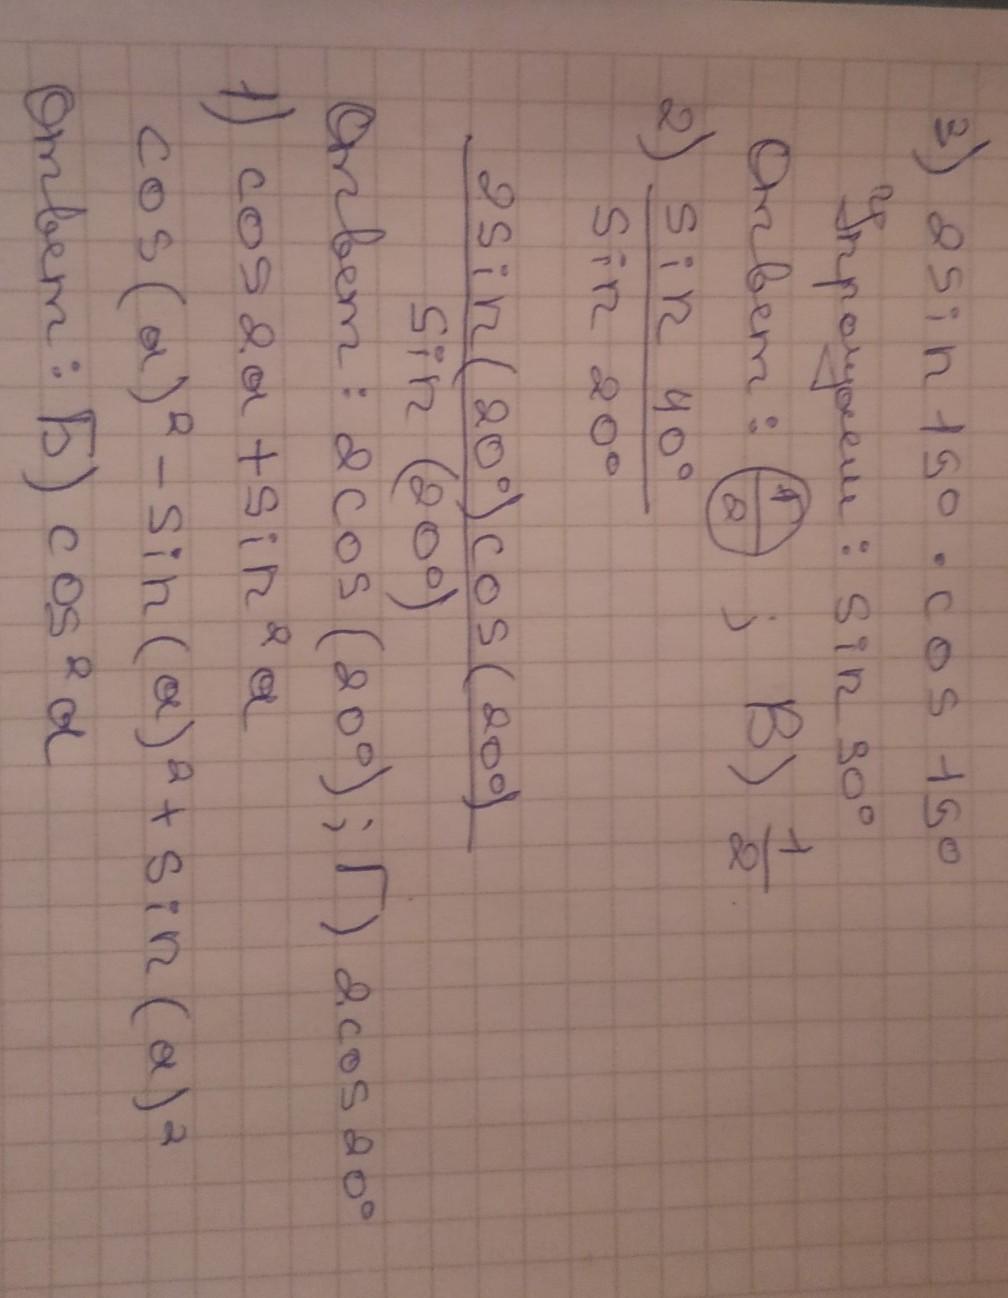 3) 2sin 15° · cos 15°
Упрощаем: sin 30°
Ответ: 1/2 ; В) 1/2
2) sin 40° / sin 20°
2sin(20°)cos(20°) / sin(20°)
Ответ: 2cos(20°); Г) 2cos20°
1) cos2α + sin²α
cos(α)² - sin(α)² + sin(α)²
Ответ: Б) cos²α